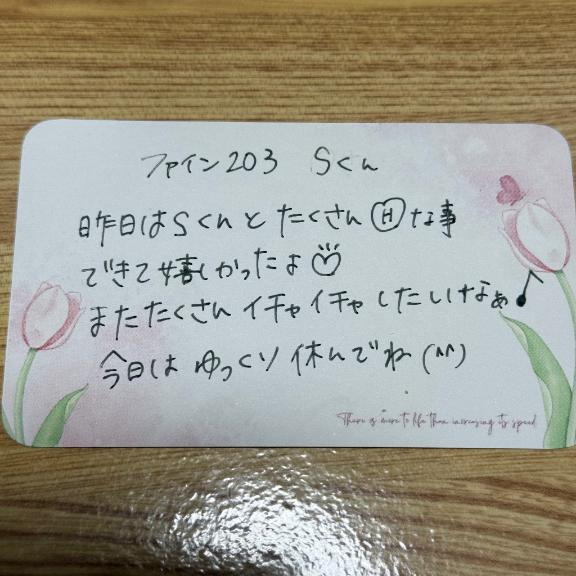 ファイン203 Sくん
昨日はSくんとたくさんⒽな事
できて嬉しかったよ♡
またたくさんイチャイチャしたいなぁ♪
今日はゆっくり休んでね(^^)
There is more to life than increasing its speed